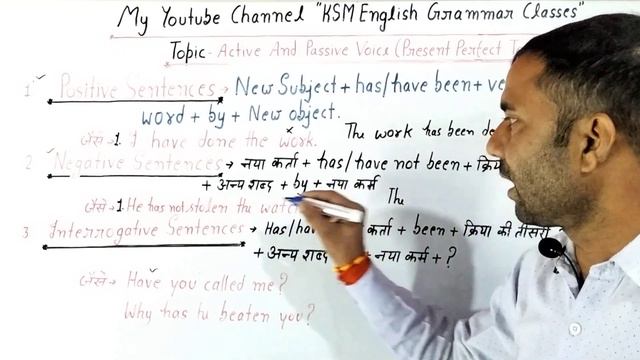 My Youtube Channel "KSM English Grammar Classes"
Topic- Active And Passive Voice (Present Perfect
1 Positive Sentences → New Subject + has/have been +
word + by + New object.
जैसे→ 1. I have done the work. The work has been
2 Negative Sentences → नया कर्ता + has/have not been +
+ अन्य शब्द + by + नया कर्म
जैसे→ 1. He has not stolen the The
3 Interrogative Sentences → Has/ कर्ता + been + क्रिया की तीसरी
+ अन्य शब्द + नया कर्म + ?
जैसे→ Have you called me?
Why has he beaten you?